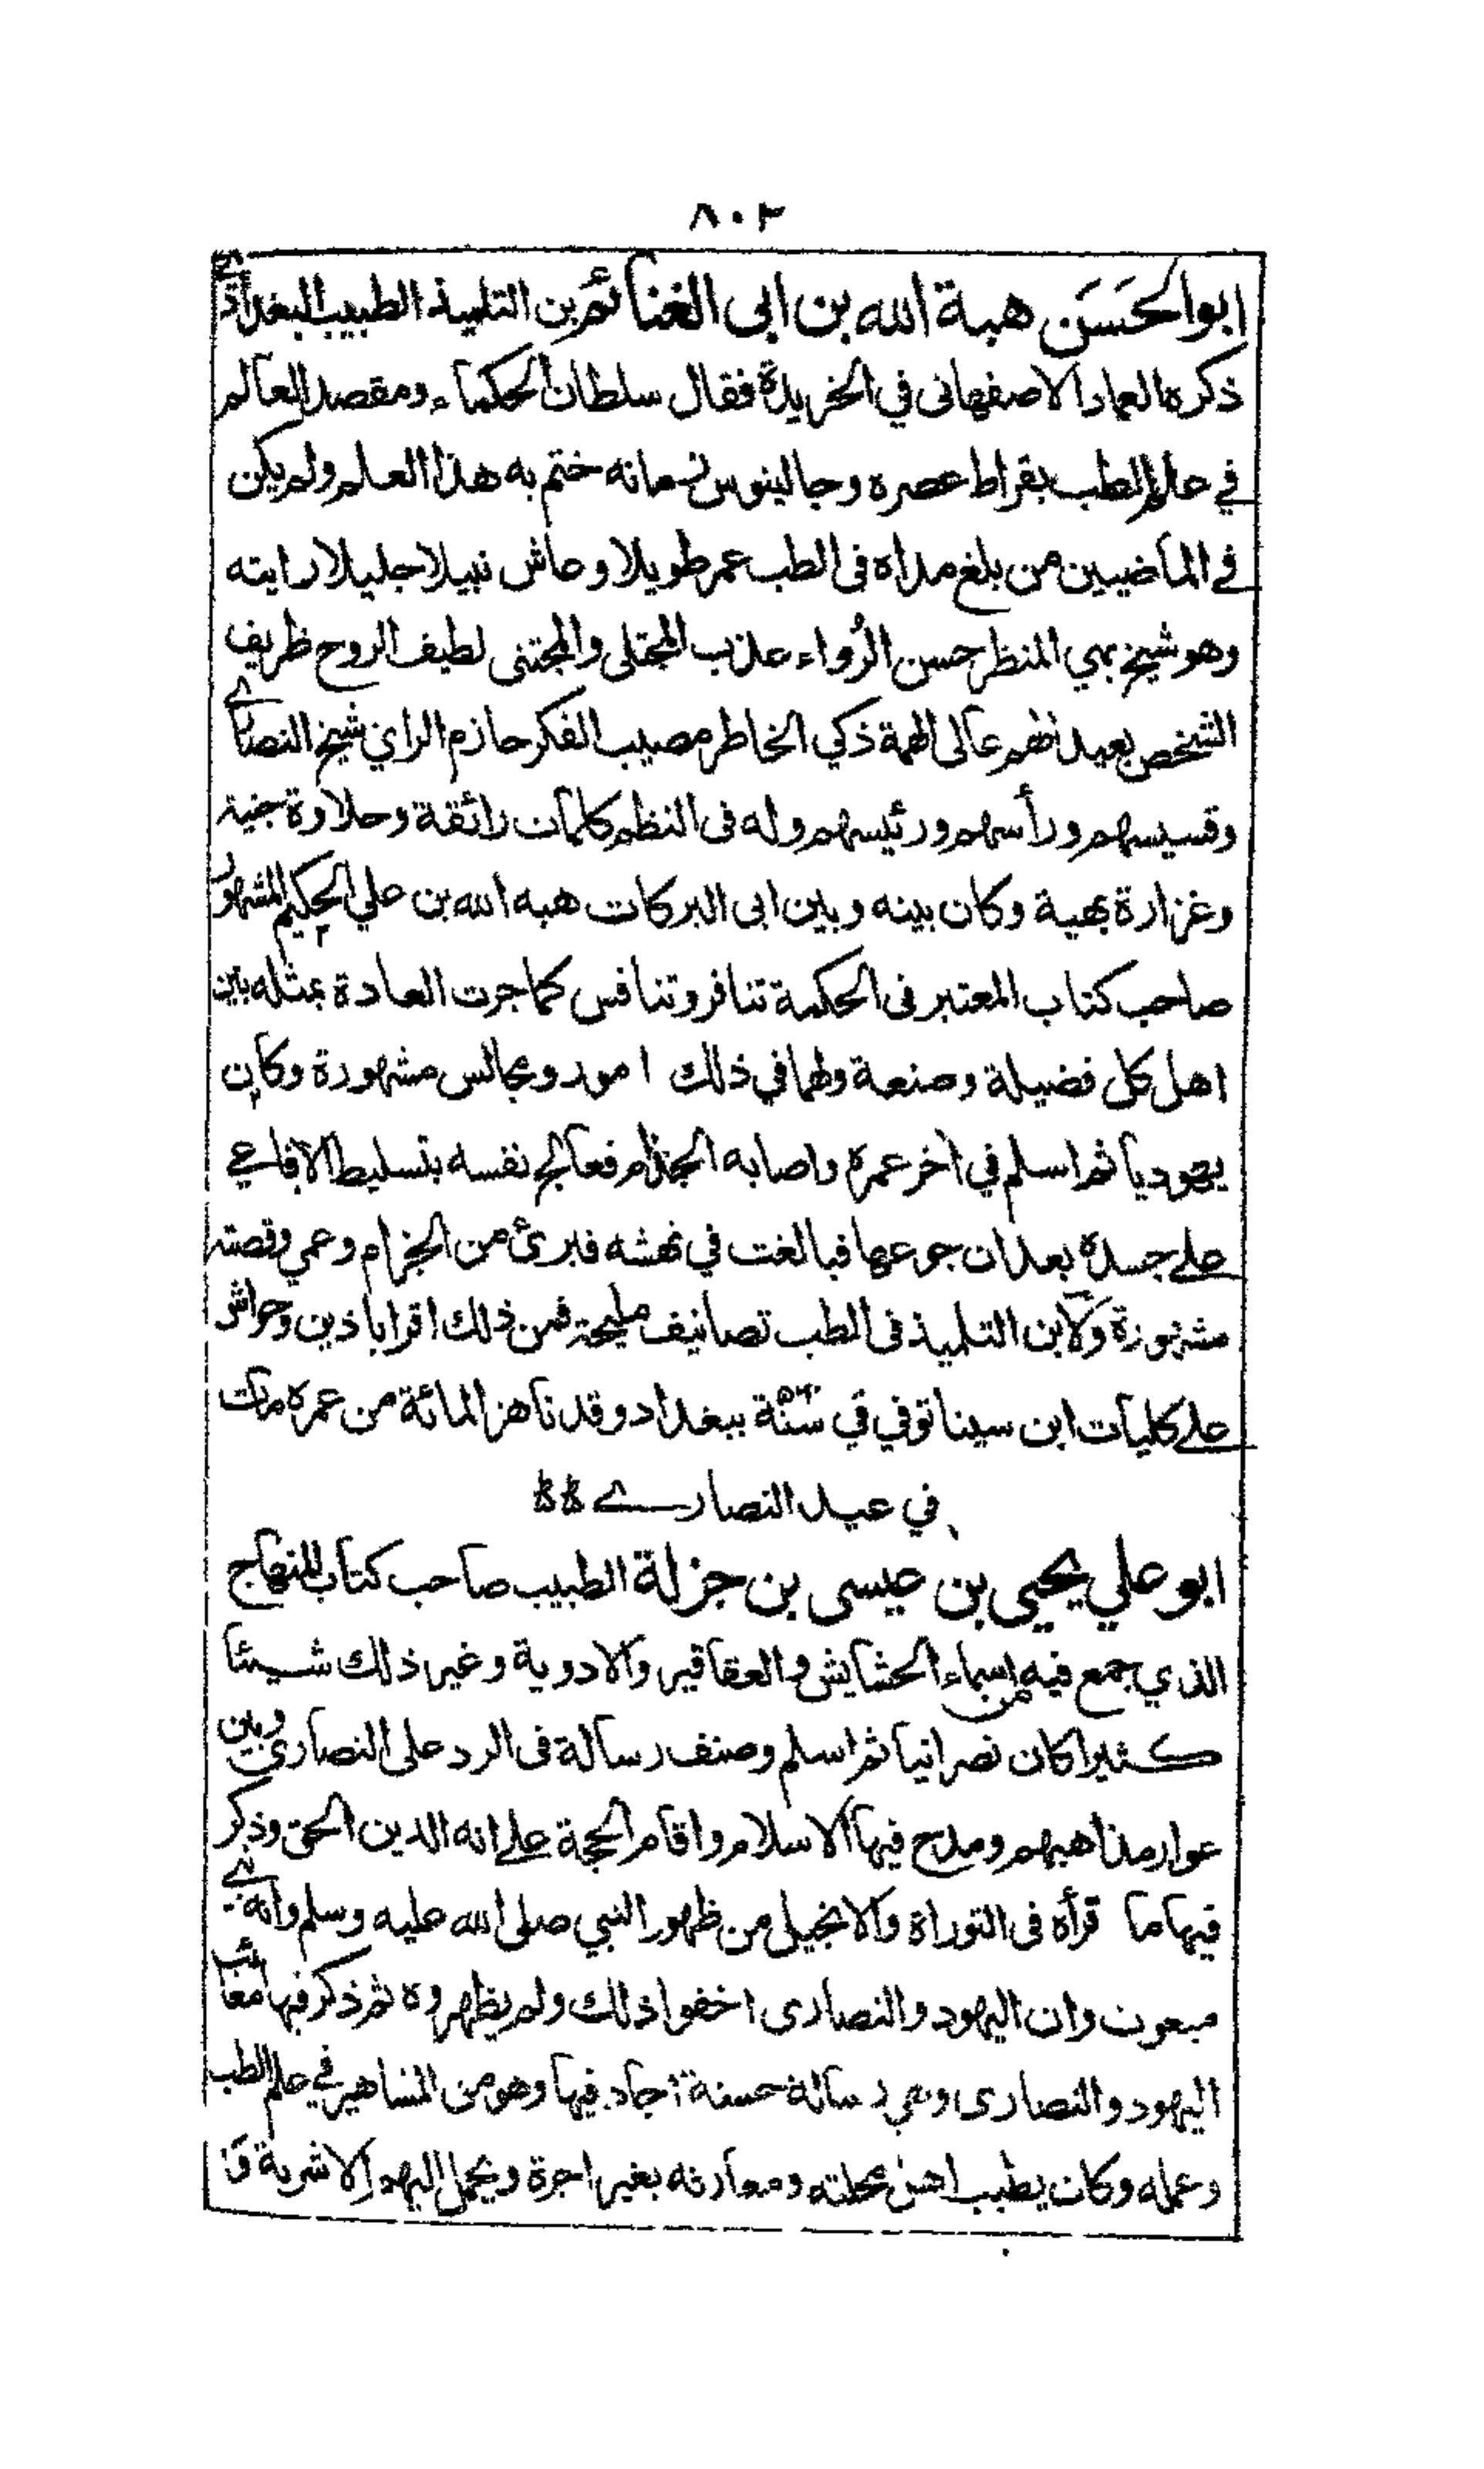 ٨٠٢
ابوالحَسَن هبة الله بن ابى الغنائم بن التلميذ الطبيب البغدادي
ذكره العماد الاصفهانى في الخريدة فقال سلطان الحكماء ومقصد العالم
في علم الطب بقراط عصره وجالينوس زمانه ختم به هذا العلم ولم يكن
في الماضيين من بلغ مداه فى الطب عمر طويلا وعاش نبيلا جليلا رايته
وهو شيخ بهي المنظر حسن الرُواء عذب المجتلى والمجتنى لطيف الروح ظريف
الشخص بعيد الهم عالى الهمة ذكي الخاطر مصيب الفكر حازم الراي شيخ النصارے
وقسيسهم ورأسهم ورئيسهم وله فى النظم كلمات رائقة وحلاوة جنية
وغزارة بهية وكان بينه وبين ابى البركات هبه الله بن علي الحكيم المشهور
صاحب كتاب المعتبر فى الحكمة تنافر وتنافس كما جرت العادة بمثله بين
اهل كل فضيلة وصنعة ولهما في ذلك امور ومجالس مشهورة وكان
يهوديا ثم اسلم في اخر عمره واصابه الجذام فعالج نفسه بتسليط الافاعي
على جسده بعد ان جوعها فبالغت في نهشه فبرئ من الجزام وعمي وقصته
مشهورة ولابن التلميذ فى الطب تصانيف مليحة فمن ذلك اقراباذين وحواش
على كليات ابن سينا توفي في سنة ٥٦٠ ببغداد وقد ناهز المائة من عمره مات
في عيد النصارے
ابو علي يحيى بن عيسى بن جزلة الطبيب صاحب كتاب المنهاج
الذي جمع فيه من اسماء الحشايش والعقاقير والادوية وغير ذلك شيئا
كثيرا كان نصرانيا ثم اسلم وصنف رسالة فى الرد على النصارى وبين
عوار مذاهبهم ومدح فيها الاسلام واقام الحجة على انه الدين الحق وذكر
فيها ما قرأه فى التوراة والانجيل من ظهور النبي صلى الله عليه وسلم وانه نبے
مبعوث وان اليهود والنصارى اخفوا ذلك ولم يظهروه ثم ذكر فيها معائب
اليهود والنصارى وهي رسالة حسنة اجاد فيها وهو من المشاهير في علم الطب
وعمله وكان يطبب اهل محلته ومعارفه بغير اجرة ويحمل اليهم الاشربة و